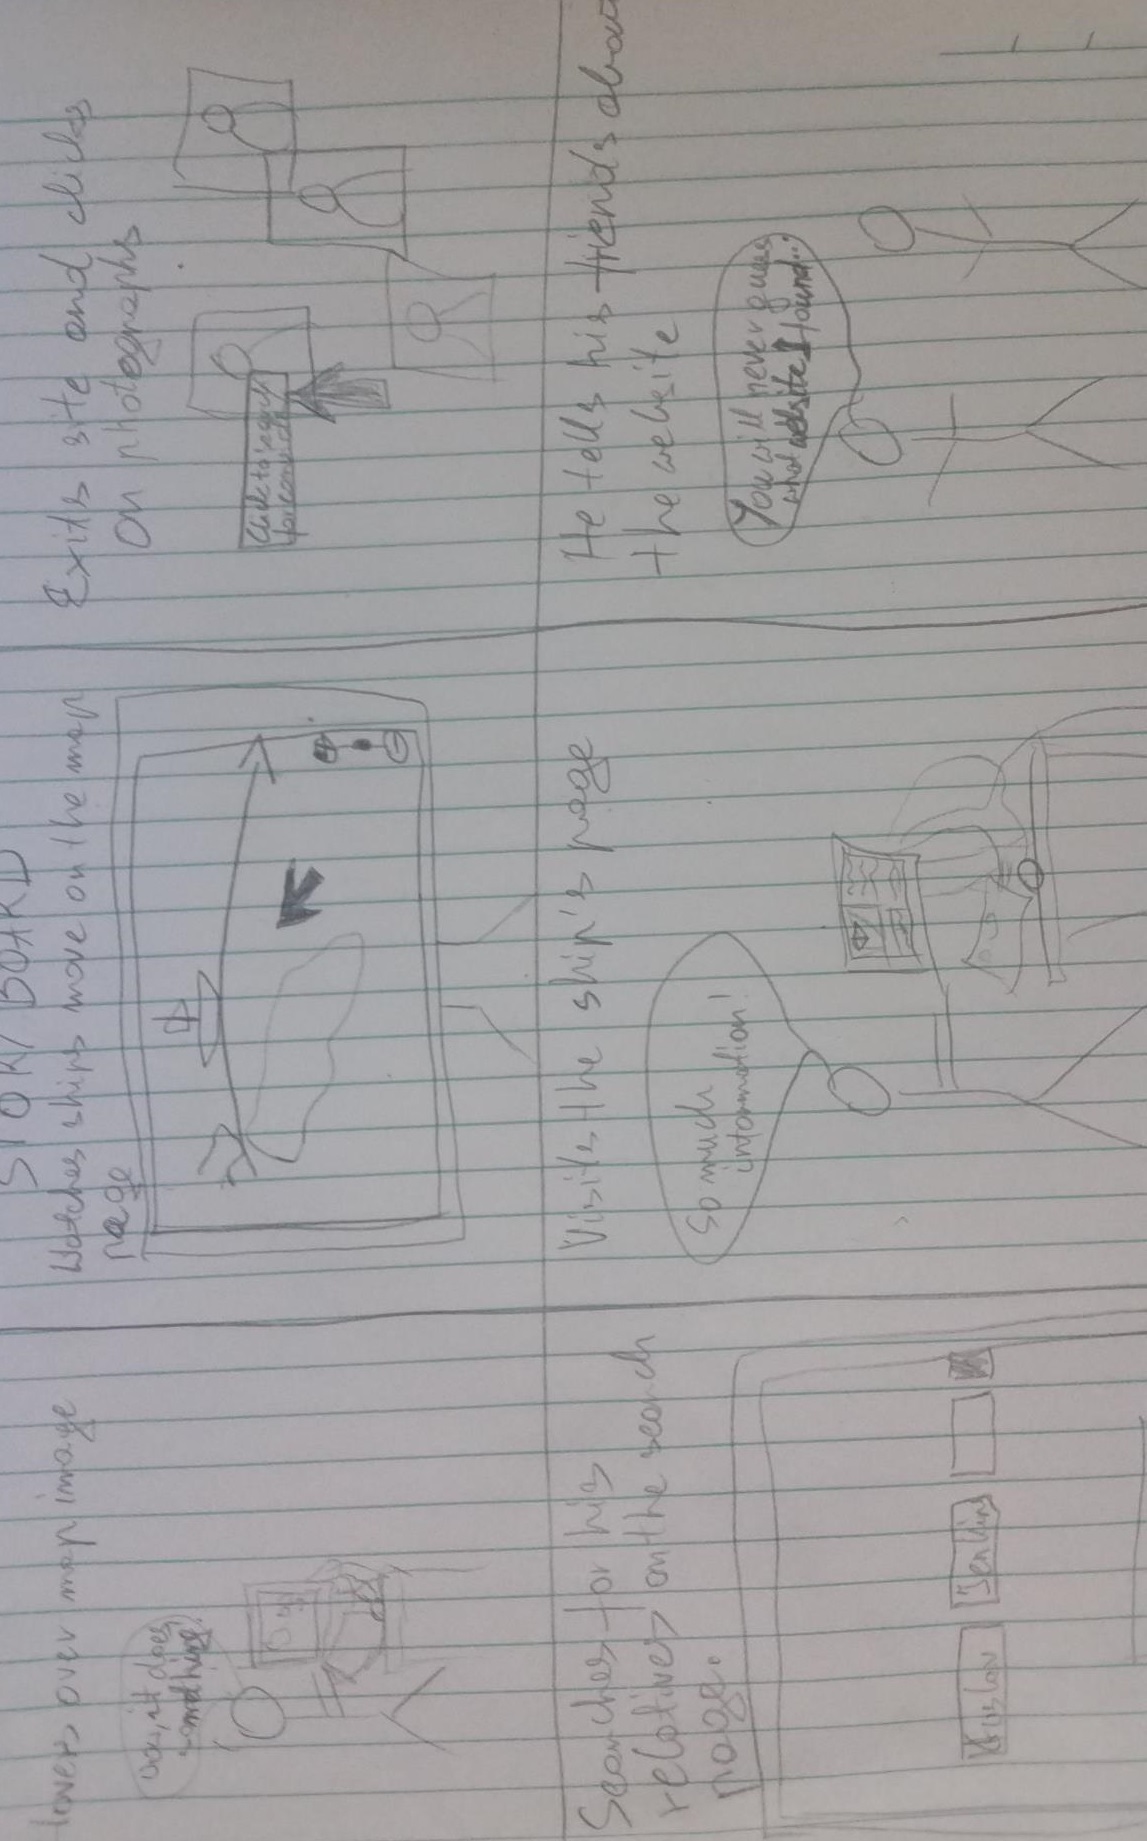 STORYBOARD
overs over map image
it does
something.
Watches ships move on the map
page
Exits site and clicks
on photographs
Click to
for
Searches for his
relatives on the search
page.
Jenkins
Visits the ship's page
So much
information!
He tells his friends about
the website
You will never guess
what website I found...